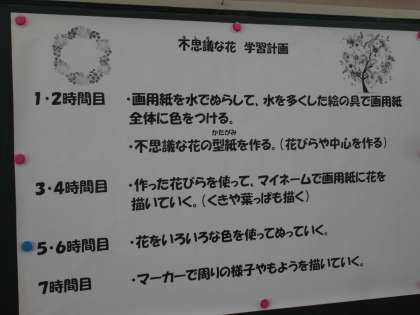 不思議な花　学習計画
1・2時間目　・画用紙を水でぬらして、水を多くした絵の具で画用紙
全体に色をつける。
かたがみ
・不思議な花の型紙を作る。（花びらや中心を作る）
3・4時間目　・作った花びらを使って、マイネームで画用紙に花を
描いていく。（くきや葉っぱも描く）
5・6時間目　・花をいろいろな色を使ってぬっていく。
7時間目　・マーカーで周りの様子やもようを描いていく。